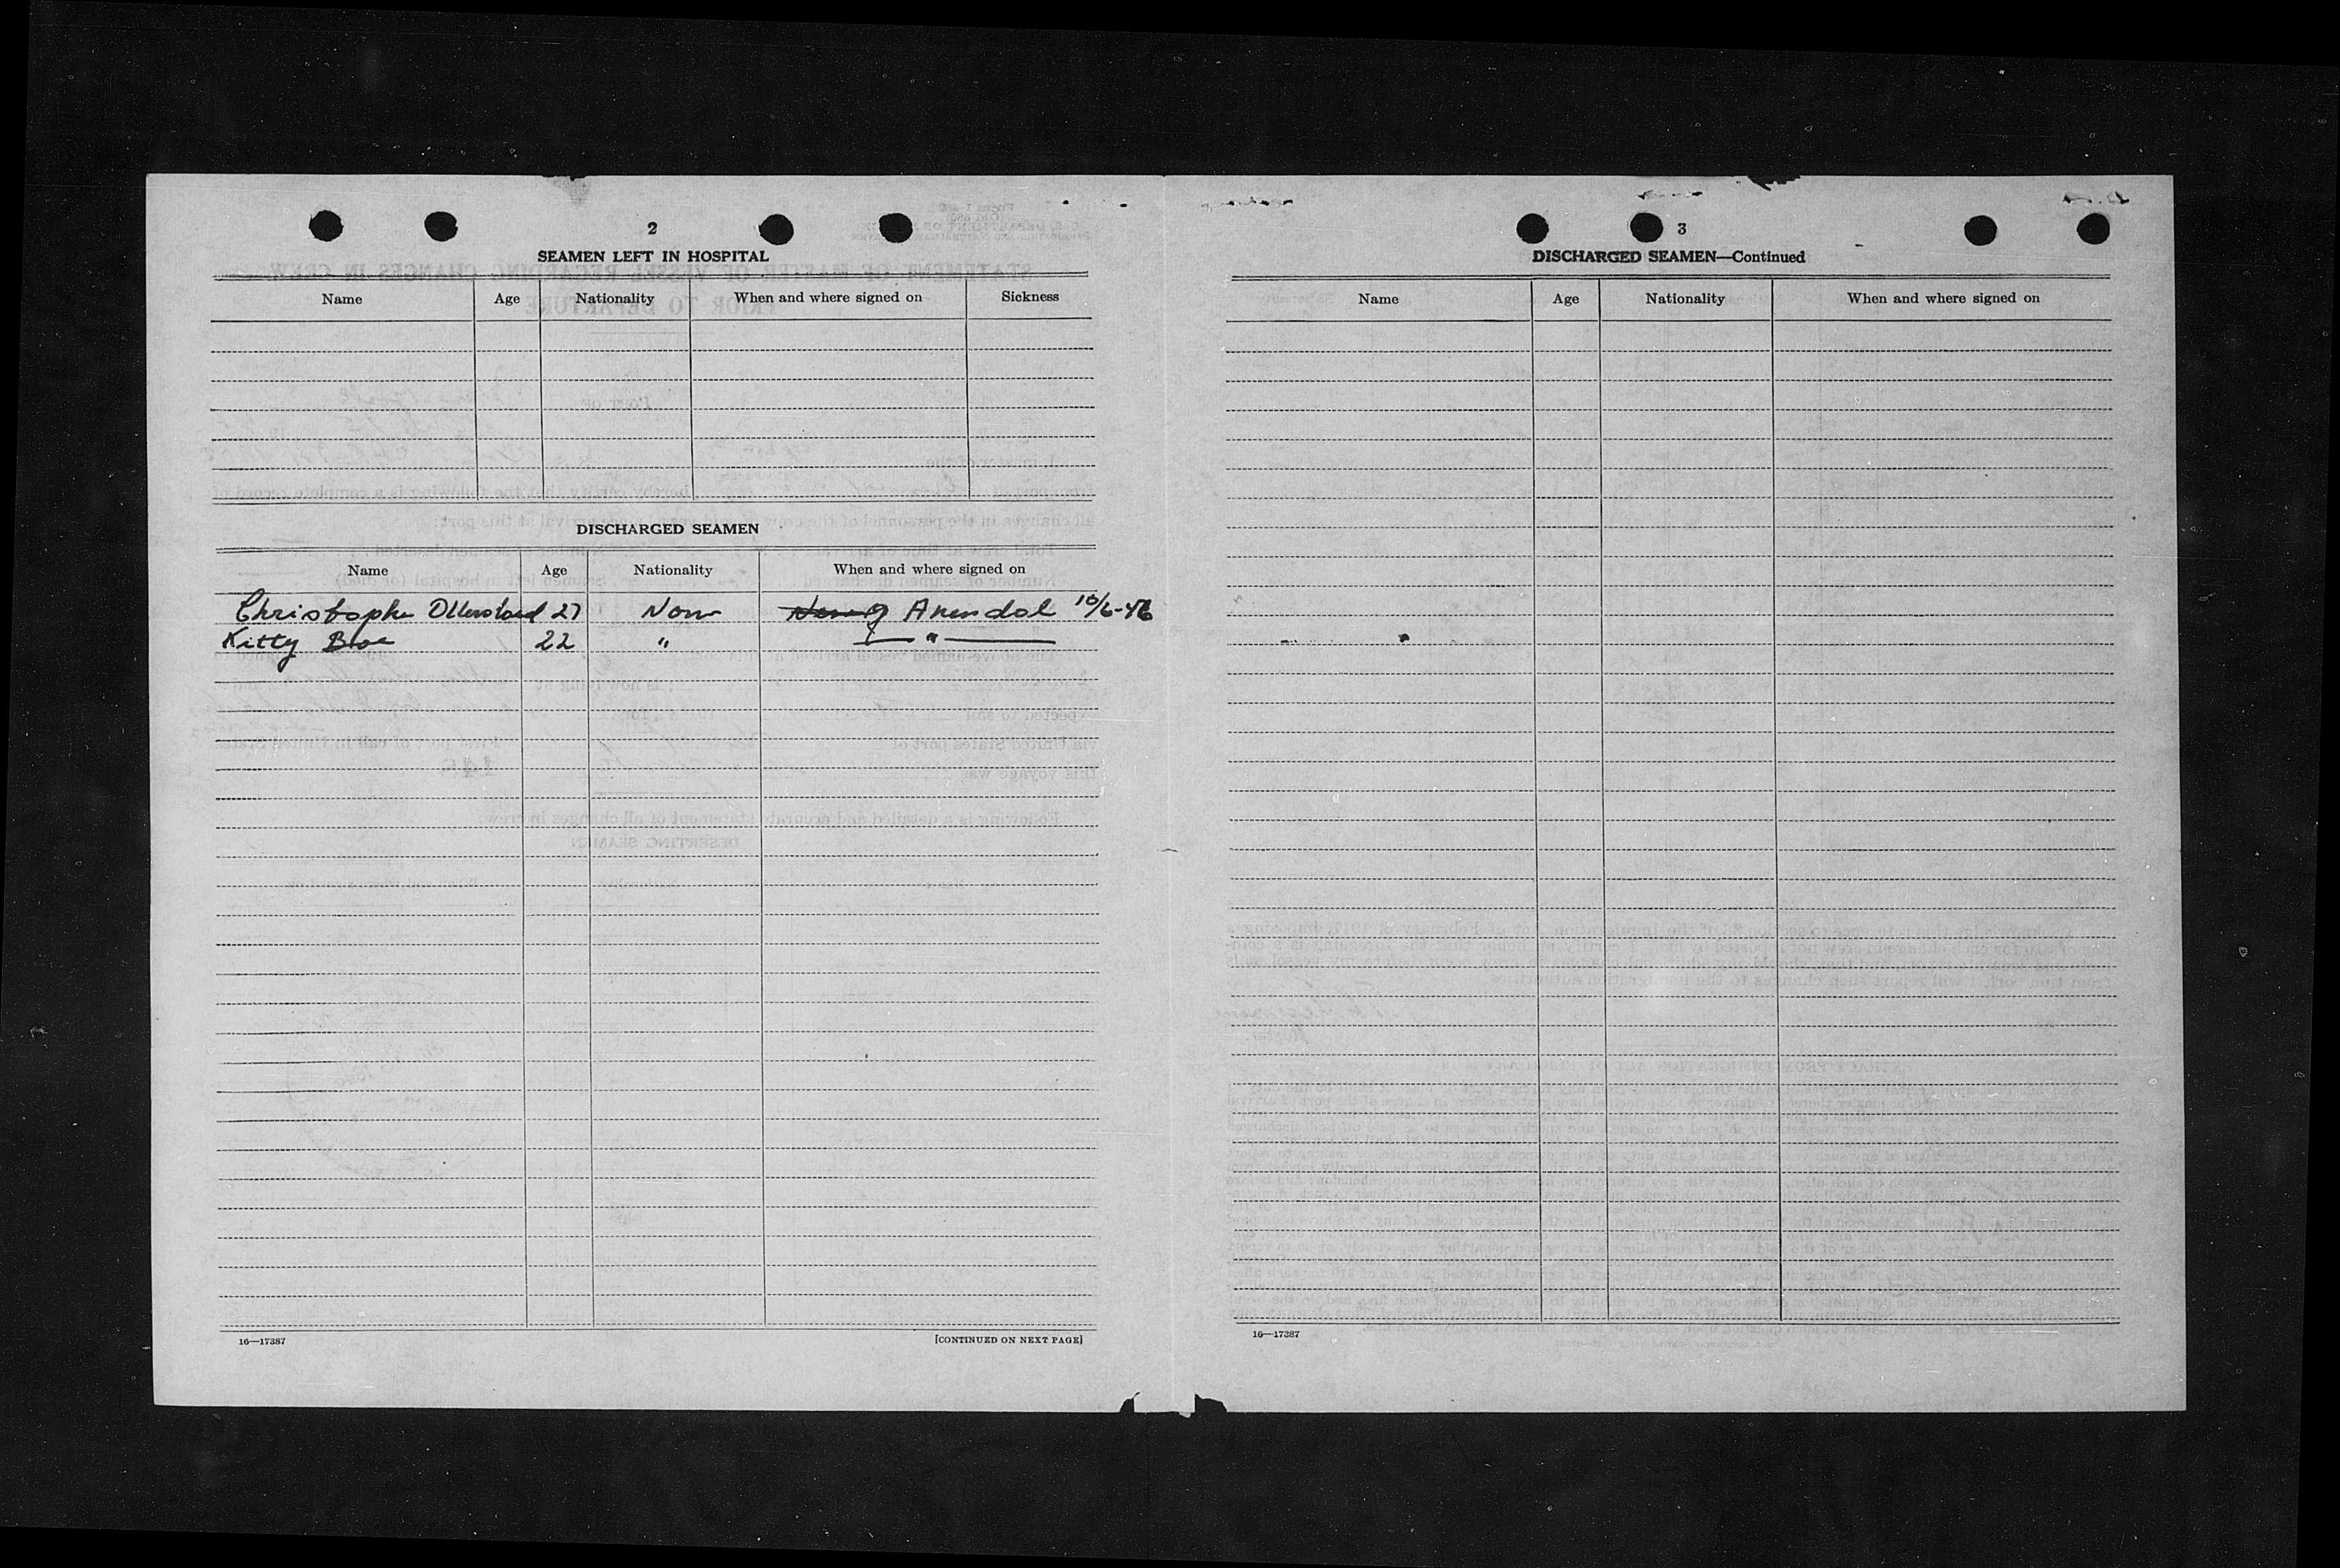 2
SEAMEN LEFT IN HOSPITAL
Name Age Nationality When and where signed on Sickness
DISCHARGED SEAMEN
Name Age Nationality When and where signed on
Christopher 27 Norw Arendal 10/6-46
Kitty Boe 22 " — " —
16—17387 [CONTINUED ON NEXT PAGE]
3
DISCHARGED SEAMEN—Continued
Name Age Nationality When and where signed on
16—17387